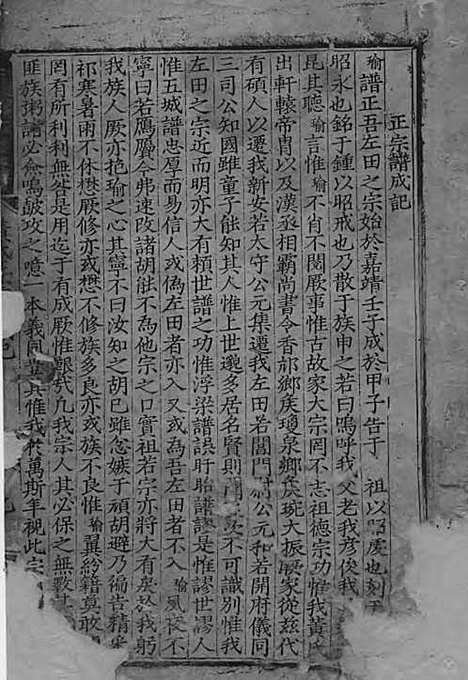 正宗譜成記
瑜譜正吾左田之宗始於嘉靖壬子成於甲子告于 祖以昭虔也刻于
昭永也銘于鍾以昭戒也乃散于族申之若曰嗚呼我父老我彥俊我
昆其聽瑜言惟瑜不肖不閱厥事惟古故家大宗罔不志祖德宗功惟我黃氏
出軒轅帝胄以及漢丞相霸尚書令香邟鄉侯瓊泉鄉侯琬大振厥家從茲代
有碩人以遷我新安若太守公元集遷我左田若閶門尉公元和若開府儀同
三司公知國雖童子能知其人惟上世邈多居名賢則不可識別惟我
左田之宗近而明亦大有賴世譜之功惟浮梁譜誤盱眙譜謬是惟謬世謬人
惟五城譜忠厚而易信人或偽左田者亦入又或為吾左田者不入瑜夙夜不
寧曰若鴈屬今弗速改諸胡能不為他宗之口實祖若宗亦將大有矣於我躬
我族人厥亦抱瑜之之其寧不曰汝知之胡已雖忿嫉于頑胡避乃徧古精
祁寒暑雨不休懋厥修亦或想不修族多良亦或族不良惟瑜翼紛籍莫敢
罔有所利利無然是用迄于有成厥惟艱哉凡我宗人其必保之無斁
匪族粥譜必僉鳴皷攻之噫一本義同其惟我於萬斯年視此宗